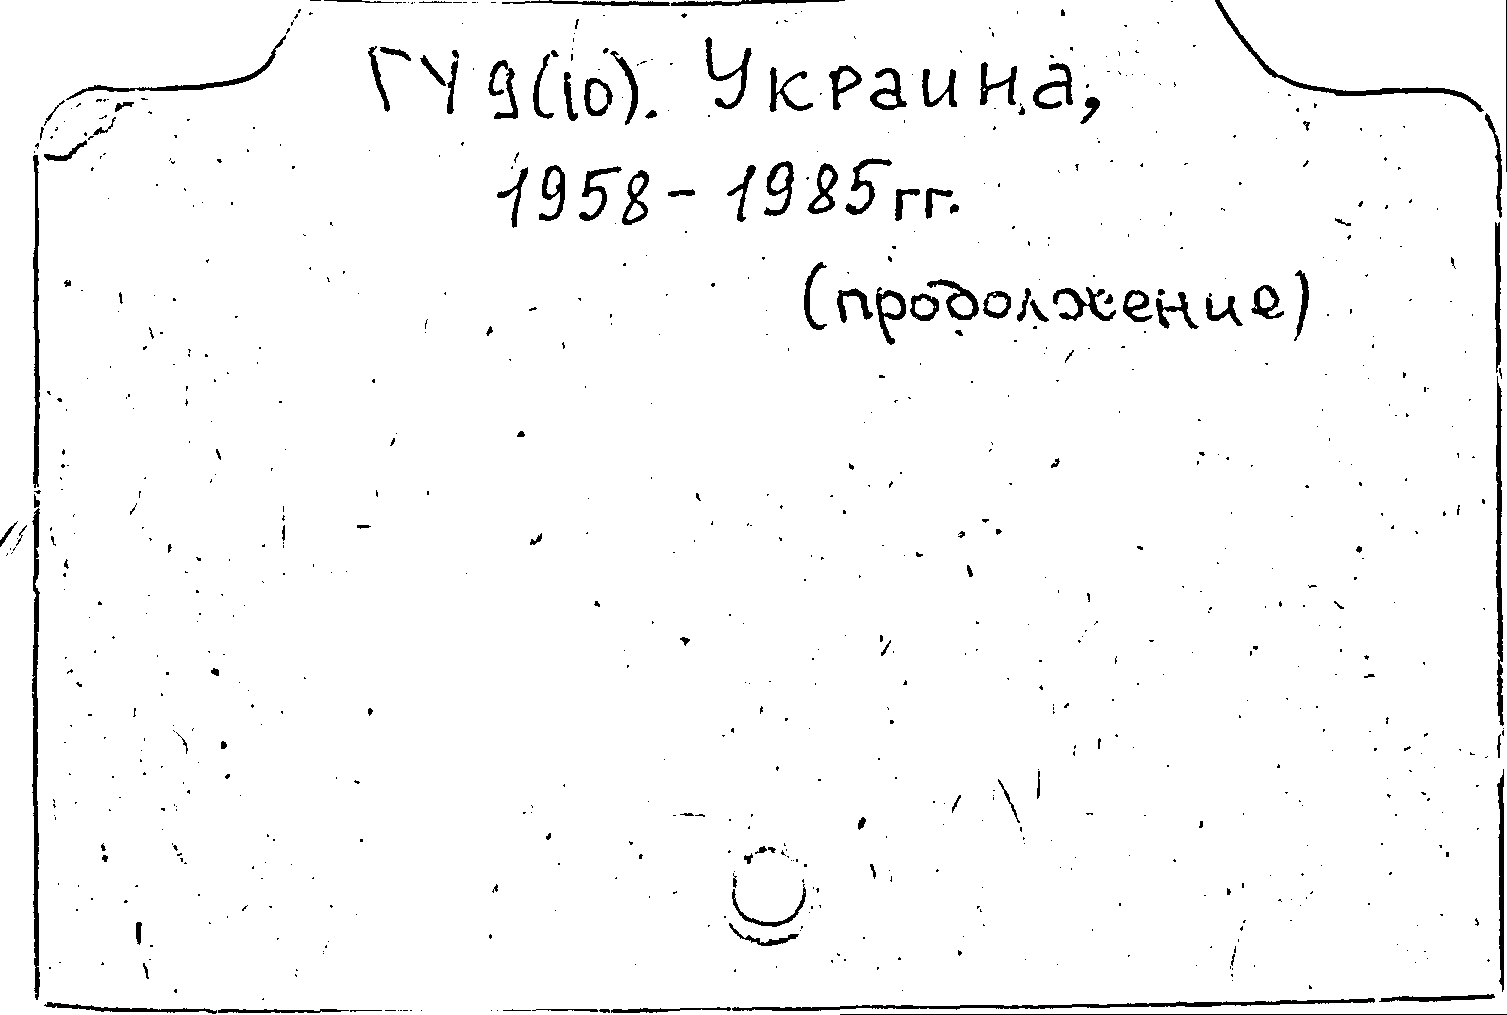 ГУ9(10). Украина,
1958-1985гг.
(продолжение)